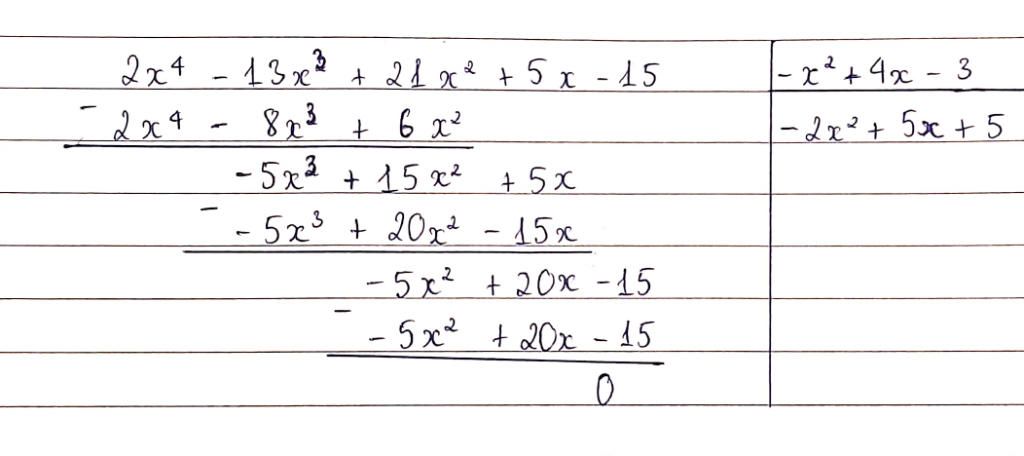 2x⁴ - 13x³ + 21x² + 5x - 15 | -x² + 4x - 3
- 2x⁴ - 8x³ + 6x² | -2x² + 5x + 5
-5x³ + 15x² + 5x
- -5x³ + 20x² - 15x
-5x² + 20x - 15
- -5x² + 20x - 15
0